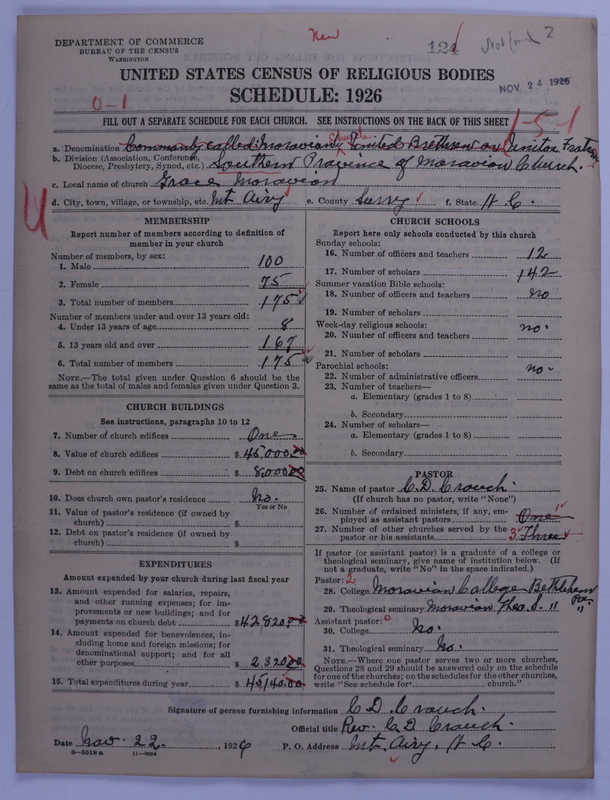 New
DEPARTMENT OF COMMERCE
BUREAU OF THE CENSUS
WASHINGTON
124
2
UNITED STATES CENSUS OF RELIGIOUS BODIES
NOV 24 1926
SCHEDULE: 1926
0-1
FILL OUT A SEPARATE SCHEDULE FOR EACH CHURCH. SEE INSTRUCTIONS ON THE BACK OF THIS SHEET
1-5-1
a. Denomination Commonly called Moravian Church United Brethren or Unitas Fratrum
b. Division (Association, Conference, Diocese, Presbytery, Synod, etc.) Southern Province of Moravian Church.
c. Local name of church Grace Moravian
d. City, town, village, or township, etc. Mt. Airy e. County Surry f. State N. C.
MEMBERSHIP
Report number of members according to definition of member in your church
Number of members, by sex:
1. Male 100
2. Female 75
3. Total number of members 175
Number of members under and over 13 years old:
4. Under 13 years of age 8
5. 13 years old and over 167
6. Total number of members 175
NOTE.—The total given under Question 6 should be the same as the total of males and females given under Question 3.
CHURCH BUILDINGS
See instructions, paragraphs 10 to 12
7. Number of church edifices One
8. Value of church edifices $45,000.00
9. Debt on church edifices $8,000.00
10. Does church own pastor's residence No.
Yes or No
11. Value of pastor's residence (if owned by church) $
12. Debt on pastor's residence (if owned by church) $
EXPENDITURES
Amount expended by your church during last fiscal year
13. Amount expended for salaries, repairs, and other running expenses; for improvements or new buildings; and for payments on church debt $42,820.00
14. Amount expended for benevolences, including home and foreign missions; for denominational support; and for all other purposes $2,320.00
15. Total expenditures during year $45,140.00
CHURCH SCHOOLS
Report here only schools conducted by this church
Sunday schools:
16. Number of officers and teachers 12
17. Number of scholars 142
Summer vacation Bible schools:
18. Number of officers and teachers no
19. Number of scholars
Week-day religious schools:
20. Number of officers and teachers no.
21. Number of scholars
Parochial schools:
22. Number of administrative officers no.
23. Number of teachers—
a. Elementary (grades 1 to 8)
b. Secondary
24. Number of scholars—
a. Elementary (grades 1 to 8)
b. Secondary
PASTOR
25. Name of pastor C. D. Crouch.
(If church has no pastor, write "None")
26. Number of ordained ministers, if any, employed as assistant pastors One
27. Number of other churches served by the pastor or his assistants 3 Three
If pastor (or assistant pastor) is a graduate of a college or theological seminary, give name of institution below. (If not a graduate, write "No" in the space indicated.)
Pastor: 2
28. College Moravian College Bethlehem Pa.
29. Theological seminary Moravian Theo. S. " "
Assistant pastor: 0
30. College No.
31. Theological seminary No.
NOTE.—Where one pastor serves two or more churches, Questions 28 and 29 should be answered only on the schedule for one of the churches; on the schedules for the other churches, write "See schedule for church."
Signature of person furnishing information C. D. Crouch.
Official title Rev. C. D. Crouch.
Date Nov. 22, 1926 P. O. Address Mt. Airy, N. C.
8—5518a 11—9654